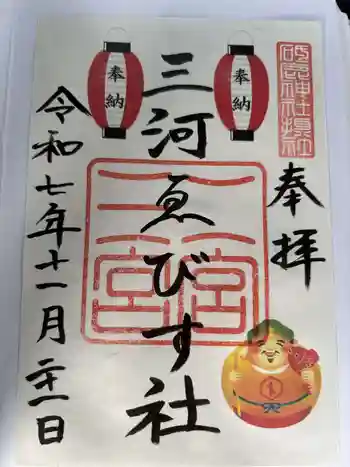 奉拝
砥鹿神社摂社
奉納
奉納
三河ゑびす社
二宮
三宮
令和七年十一月二十一日